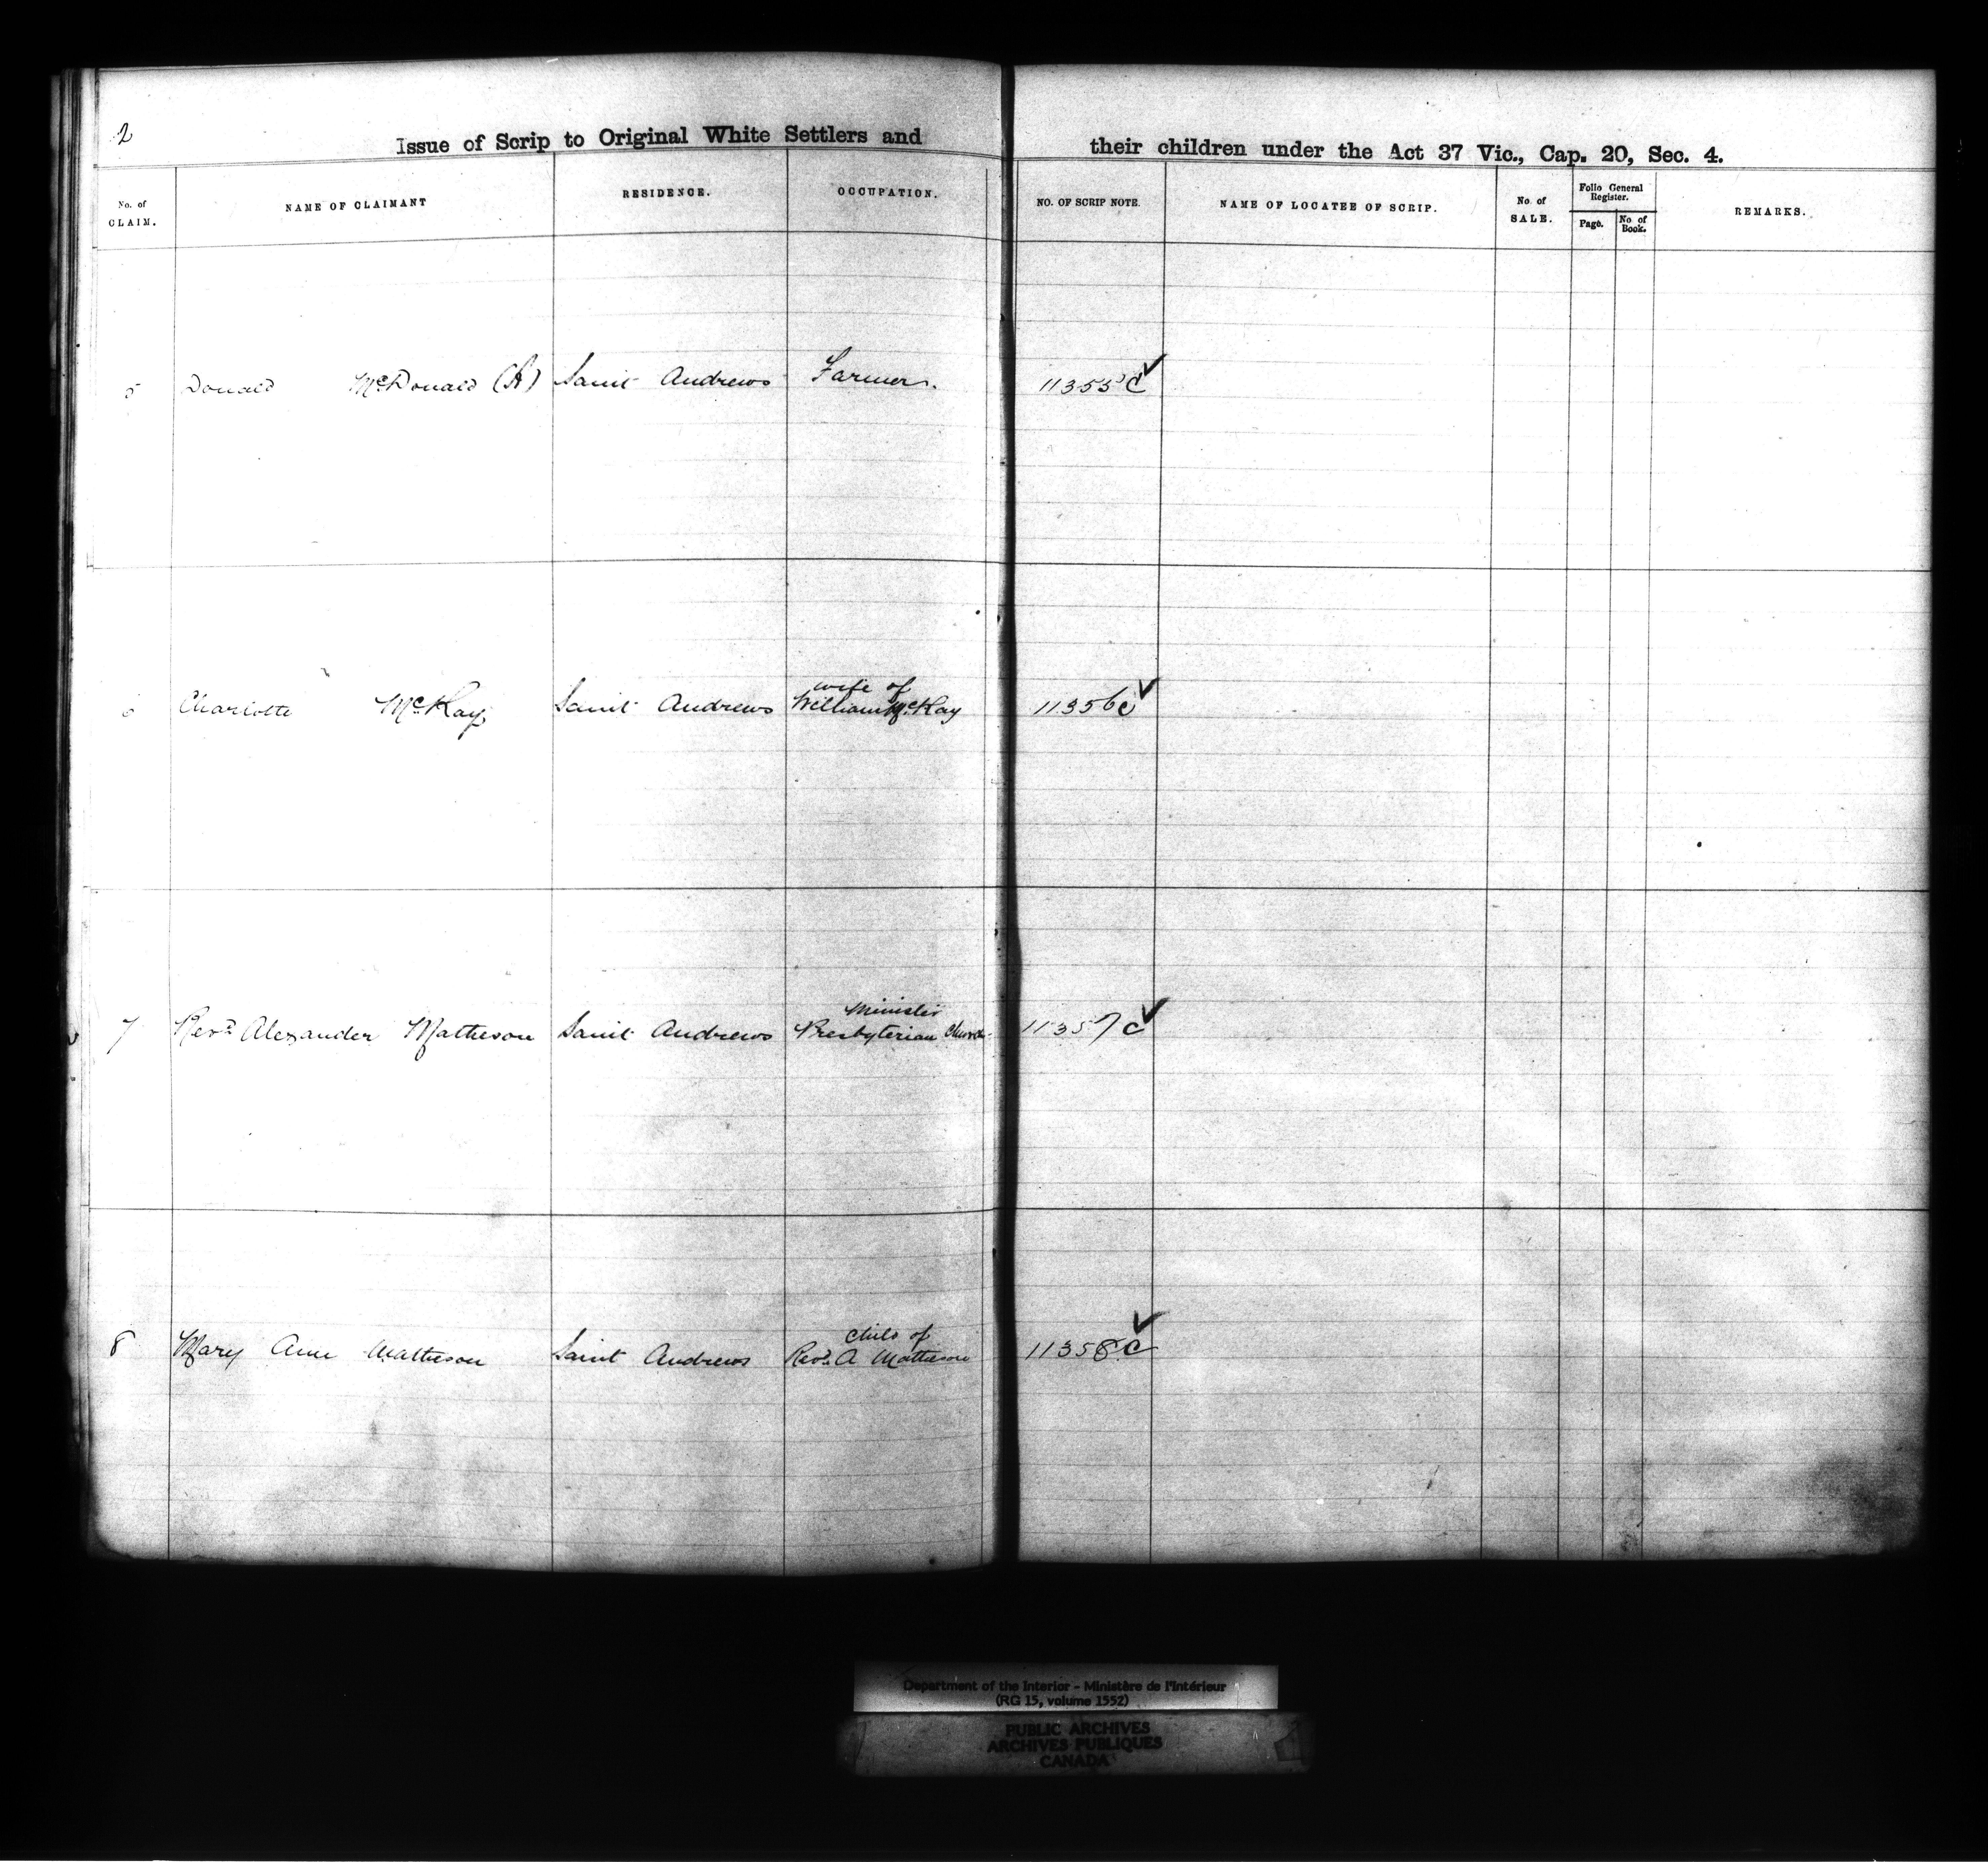 2
Issue of Scrip to Original White Settlers and their children under the Act 37 Vic., Cap. 20, Sec. 4.
No. of CLAIM. NAME OF CLAIMANT RESIDENCE. OCCUPATION. NO. OF SCRIP NOTE. NAME OF LOCATEE OF SCRIP. No. of SALE. Folio General Register. Page. No. of Book. REMARKS.
5 Donald McDonald (A) Saint Andrews Farmer. 11355 C ✓
wife of
6 Charlotte McKay Saint Andrews William McKay 11356 C ✓
Minister
7 Revd Alexander Matheson Saint Andrews Presbyterian Church 11357 C ✓
child of
8 Mary Ann Matheson Saint Andrews Revd A Matheson 11358 C ✓
Department of the Interior - Ministère de l'Intérieur
(RG 15, volume 1552)
PUBLIC ARCHIVES
ARCHIVES PUBLIQUES
CANADA